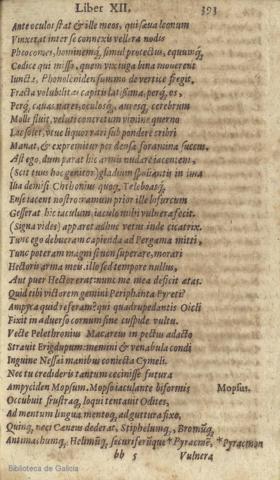 Liber XII. 393
Ante oculos stat & ille meos, qui sæua leonum
Vinxerat inter se connexis vellera nodis
Phæocomes, hominemq́, simul protectus, equumq́,
Codice qui misso, quem vix iuga bina mouerent
Iuncta, Phonoleniden summo de vertice fregit,
Fracta volubilitas capitis latissima, perq́, os,
Perq́, cauas nares, oculosq́, auresq́, cerebrum
Molle fluit, veluti concretum vimine querno
Lac solet, vtue liquor rari sub pondere cribri
Manat, & exprimitur per densa foramina succus.
Ast ego, dum parat hic armis nudare iacentem,
(Scit tuus hoc genitor) gladium spoliantis in ima
Ilia demisi Chthonius quoq́, Teleboasq́,
Ense iacent nostro: ramum prior ille bifurcum
Gesserat hic iaculum: iaculo mihi vulnera fecit.
(Signa vides) apparet adhuc vetus inde cicatrix.
Tunc ego debueram capienda ad Pergama mitti,
Tunc poteram magni si non superare, morari
Hectoris arma meis. illo sed tempore nullus,
Aut puer Hector erat: nunc me mea deficit ætas.
Quid tibi victorem gemini Periphanta Pyreti?
Ampyca quid referam? qui quadrupedantis Oicli
Fixit in aduerso cornum sine cuspide vultu.
Vecte Pelethronium Macareus in pectus adacto
Strauit Erigdupum: memini & venabula condi
Inguine Nessæi manibus coniecta Cymeli.
Nec tu credideris tantum cecinisse futura
Ampyciden Mopsum, Mopso iaculante biformis Mopsus.
Occubuit frustraq́, loqui tentauit Odites,
Ad mentum lingua, mentoq́, ad guttura fixo,
Quinq́, neci Cæneus dederat, Stiphelumq́, Bromūq́,
Antimachumq́, Helimūq́, securiferūque *Pyracmē, *Pyracmon
bb 5 Vulnera
Biblioteca de Galicia